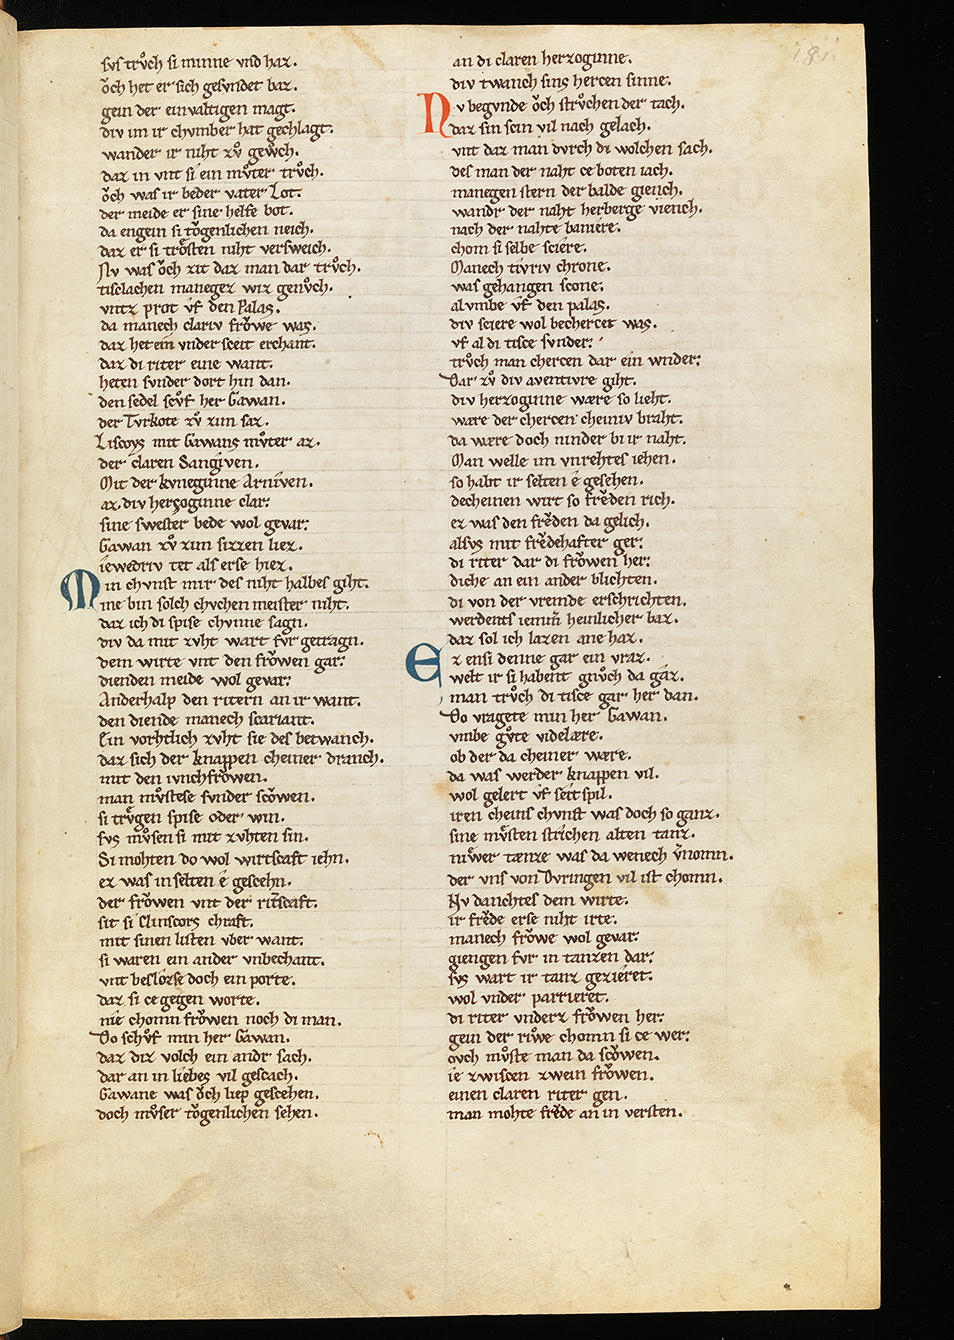 svs trůch si minne vnd haz.
ŏch het er sich gesvndet baz.
gein der einvaltigen magt.
div im ir chvmber hat gechlagt.
wander ir niht zů gewͦch.
daz in vnt si ein mͦvter trůch.
ŏch was ir beder vater Lot.
der meide er sine helfe bot.
da engein si tŏgenlichen neich.
daz er si trŏsten niht versweich.
Nv was ŏch zit daz man dar trůch.
tisclachen maneger wiz genůch.
vntz prot vf den Palas.
da manech clariv frŏwe was.
daz het ein vnder sceit erchant.
daz di riter eine want.
heten svnder dort hin dan.
den sedel scůf her Gawan.
der Tvrkote zů zim saz.
Liscoys mit Gawans mͦvter az.
der claren Sangiven.
Mit der kvneginne Arniven.
az div herzoginne clar.
sine swester bede wol gevar.
Gawan zů zim sizzen liez.
iewedriv tet als erse hiez.
Min chvnst mir des niht halbes giht.
ine bin solch chvchen meister niht.
daz ich di spise chvnne sagn.
div da mit zvht wart fvr getragn.
dem wirte vnt den frŏwen gar.
dienden meide wol gevar.
Anderhalp den ritern an ir want.
den diende manech scariant.
Ein vorhtlich zvht sie des betwanch.
daz sich der knappen cheiner dranch.
mit den ivnchfrŏwen.
man mͦvstese svnder scŏwen.
si trͮgen spise oder win.
svs mͦvsen si mit zvhten sin.
Si mohten do wol wirtscaft iehn.
ez was in selten ê gescehn.
der frŏwen vnt der ritscaft.
sit si Clinscors chraft.
mit sinen listen vber want.
si waren ein ander vnbechant.
vnt beslôzse doch ein porte.
daz si ce gegen worte.
nie chomn frŏwen noch di man.
Do schůf min her Gawan.
daz diz volch ein andr sach.
dar an in liebes vil gescach.
Gawane was ŏch liep gescehen.
doch mͦvser tŏgenlichen sehen.
an di claren herzoginne.
div twanch sins hercen sinne.
Nv begvnde ŏch strůchen der tach.
daz sin scin vil nach gelach.
vnt daz man dvrch di wolchen sach.
des man der naht ce boten iach.
manegen stern der balde giench.
wandr der naht herberge viench.
nach der nahte baniere.
chom si selbe sciere.
Manech tivriv chrone.
was gehangen scone.
al vmbe vf den palas.
div sciere wol bechercet was.
vf al di tisce svnder.
trůch man chercen dar ein wnder.
Dar zů div aventivre giht.
div herzoginne wære so lieht.
wære der chercen cheiniv braht.
da wære doch ninder bi ir naht.
Man welle im vnrehtes iehen.
so habt ir selten ê gesehen.
decheinen wirt so frͤden rich.
ez was den frͤden da gelich.
alsvs mit frͤdehafter ger.
di riter dar di frŏwen her.
diche an ein ander blichten.
di von der vremde erschrichten.
werdents iemm̄ heinlicher baz.
daz sol ich lazen ane haz.
Ez ensi denne gar ein vraz.
welt ir si habent gnůch da gaz.
man trůch di tisce gar her dan.
Do vragete min her Gawan.
vmbe gͦvte videlære.
ob der da cheiner wære.
da was werder knappen vil.
wol gelert vf seitspil.
iren cheins chvnst was doch so ganz.
sine mͦvsten strichen alten tanz.
niͮwer tænze was da wenech v̄nomn.
der vns von Dvringen vil ist chomn.
Nv danchtes dem wirte.
ir frͤde erse niht irte.
manech frŏwe wol gevar.
giengen fvr in tanzen dar.
svs wart ir tanz gezieret.
wol vnder parrieret.
di riter vnderz frŏwen her.
gein der riͮwe chomn si ce wer.
ovch mͦvste man da scŏwen.
ie zwiscen zwein frŏwen.
einen claren riter gen.
man mohte frͤde an in versten.